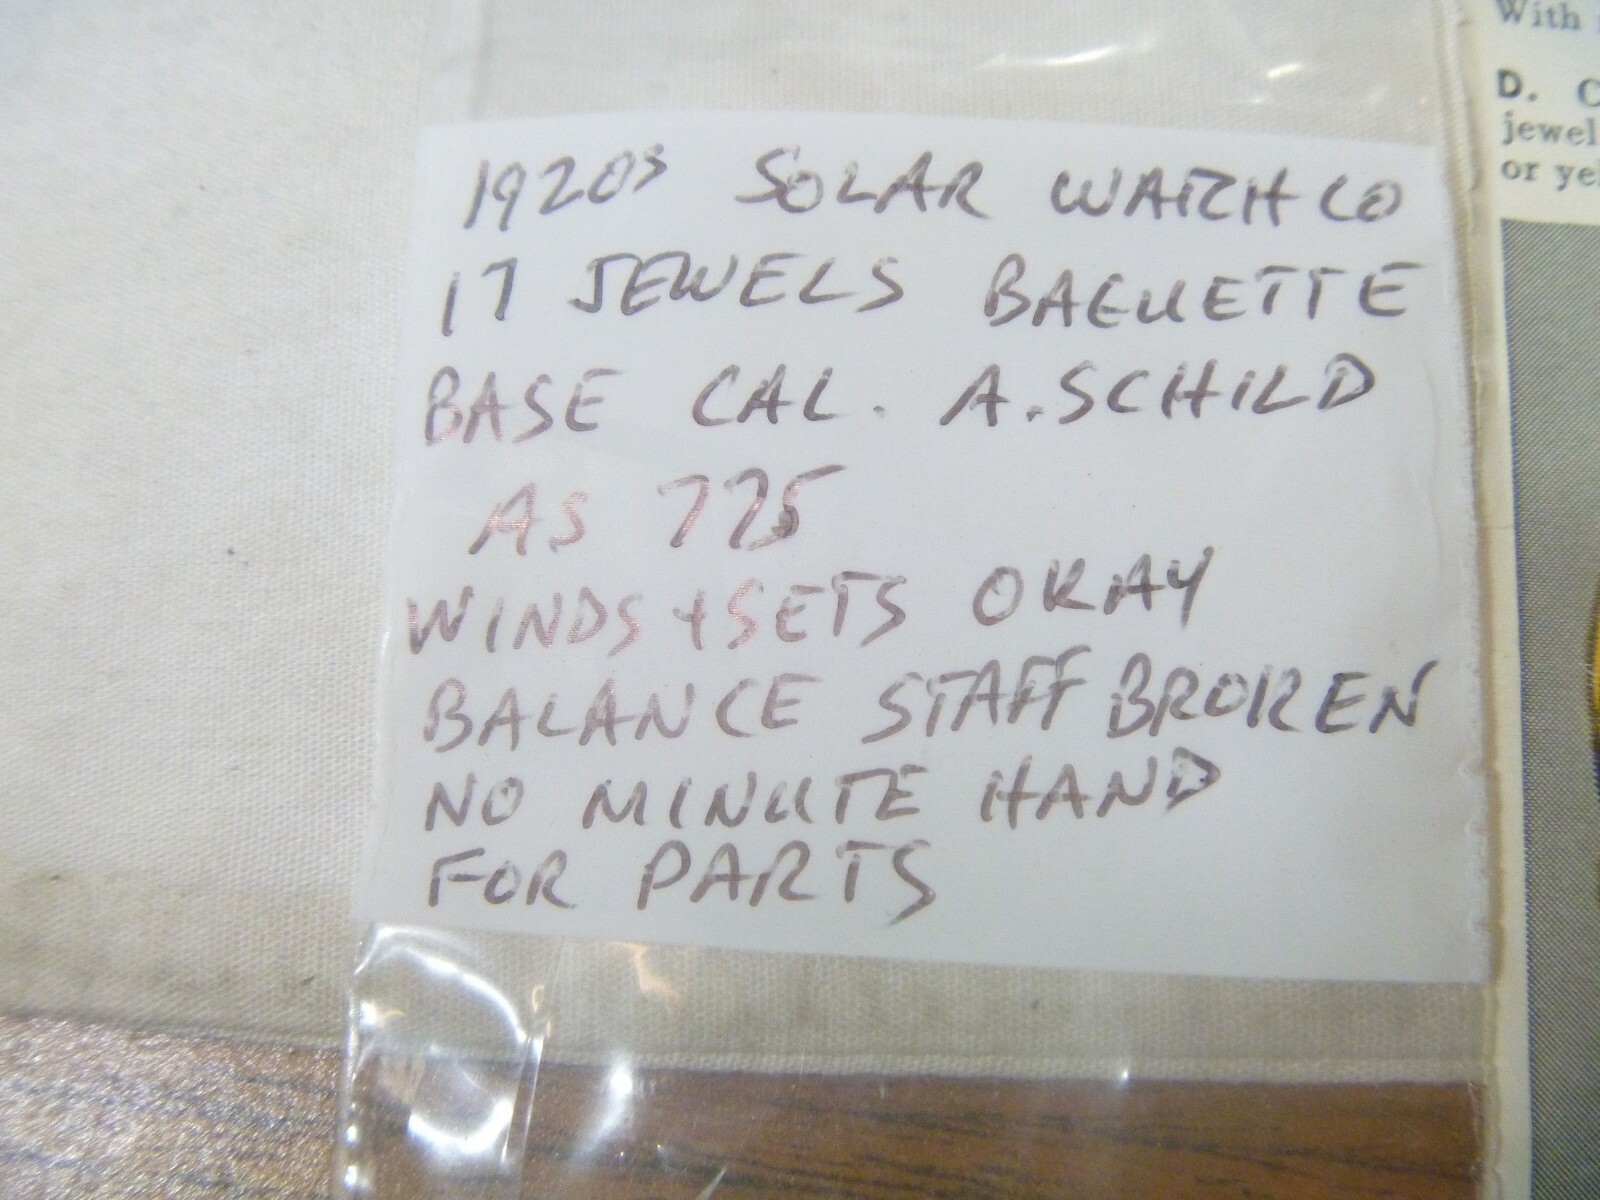 1920s SOLAR WATCH CO
17 JEWELS BAGUETTE
BASE CAL. A. SCHILD
AS 775
WINDS + SETS OKAY
BALANCE STAFF BROKEN
NO MINUTE HAND
FOR PARTS
With
D.
jewel
or yel